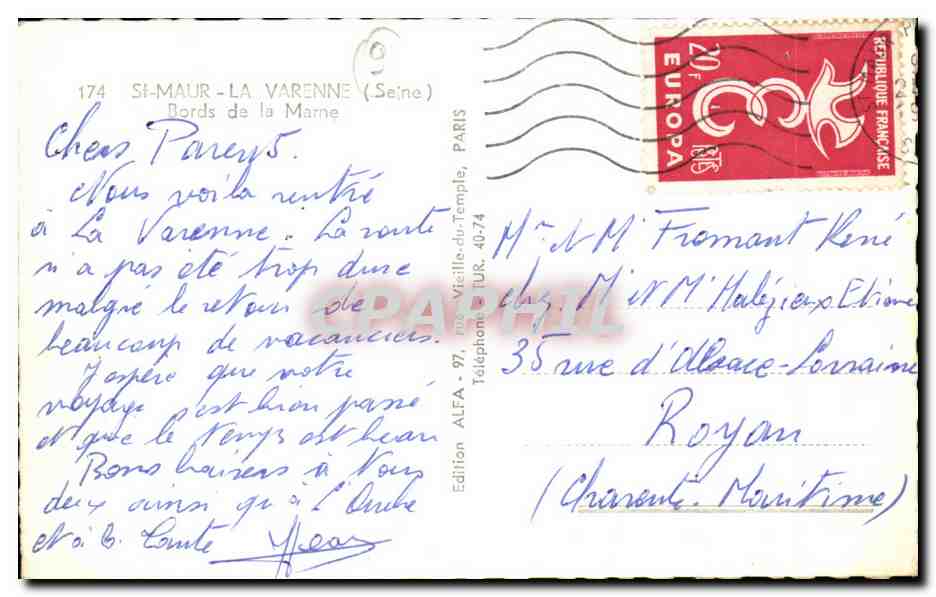 174 St-MAUR - LA VARENNE (Seine)
Bords de la Marne
Chers Parents.
Nous voila rentré
à La Varenne. La route
n'a pas été trop dure
malgré le retour de
beaucoup de vacanciers.
J'espère que votre
voyage s'est bien passé
et que le temps est beau
Bons baisers à Vous
deux ainsi qu'à L'Oncle
et à la Tante
Jean
Edition ALFA - 97, rue Vieille-du-Temple, PARIS
Téléphone : TUR. 40-74
REPUBLIQUE FRANÇAISE
20F
EUROPA
POSTES
Mr et Mme Fromant René
chez Mr et Mme Halégiaux Etienne
35 rue d'Alsace-Lorraine
Royan
(Charente-Maritime)
CPAPHIL